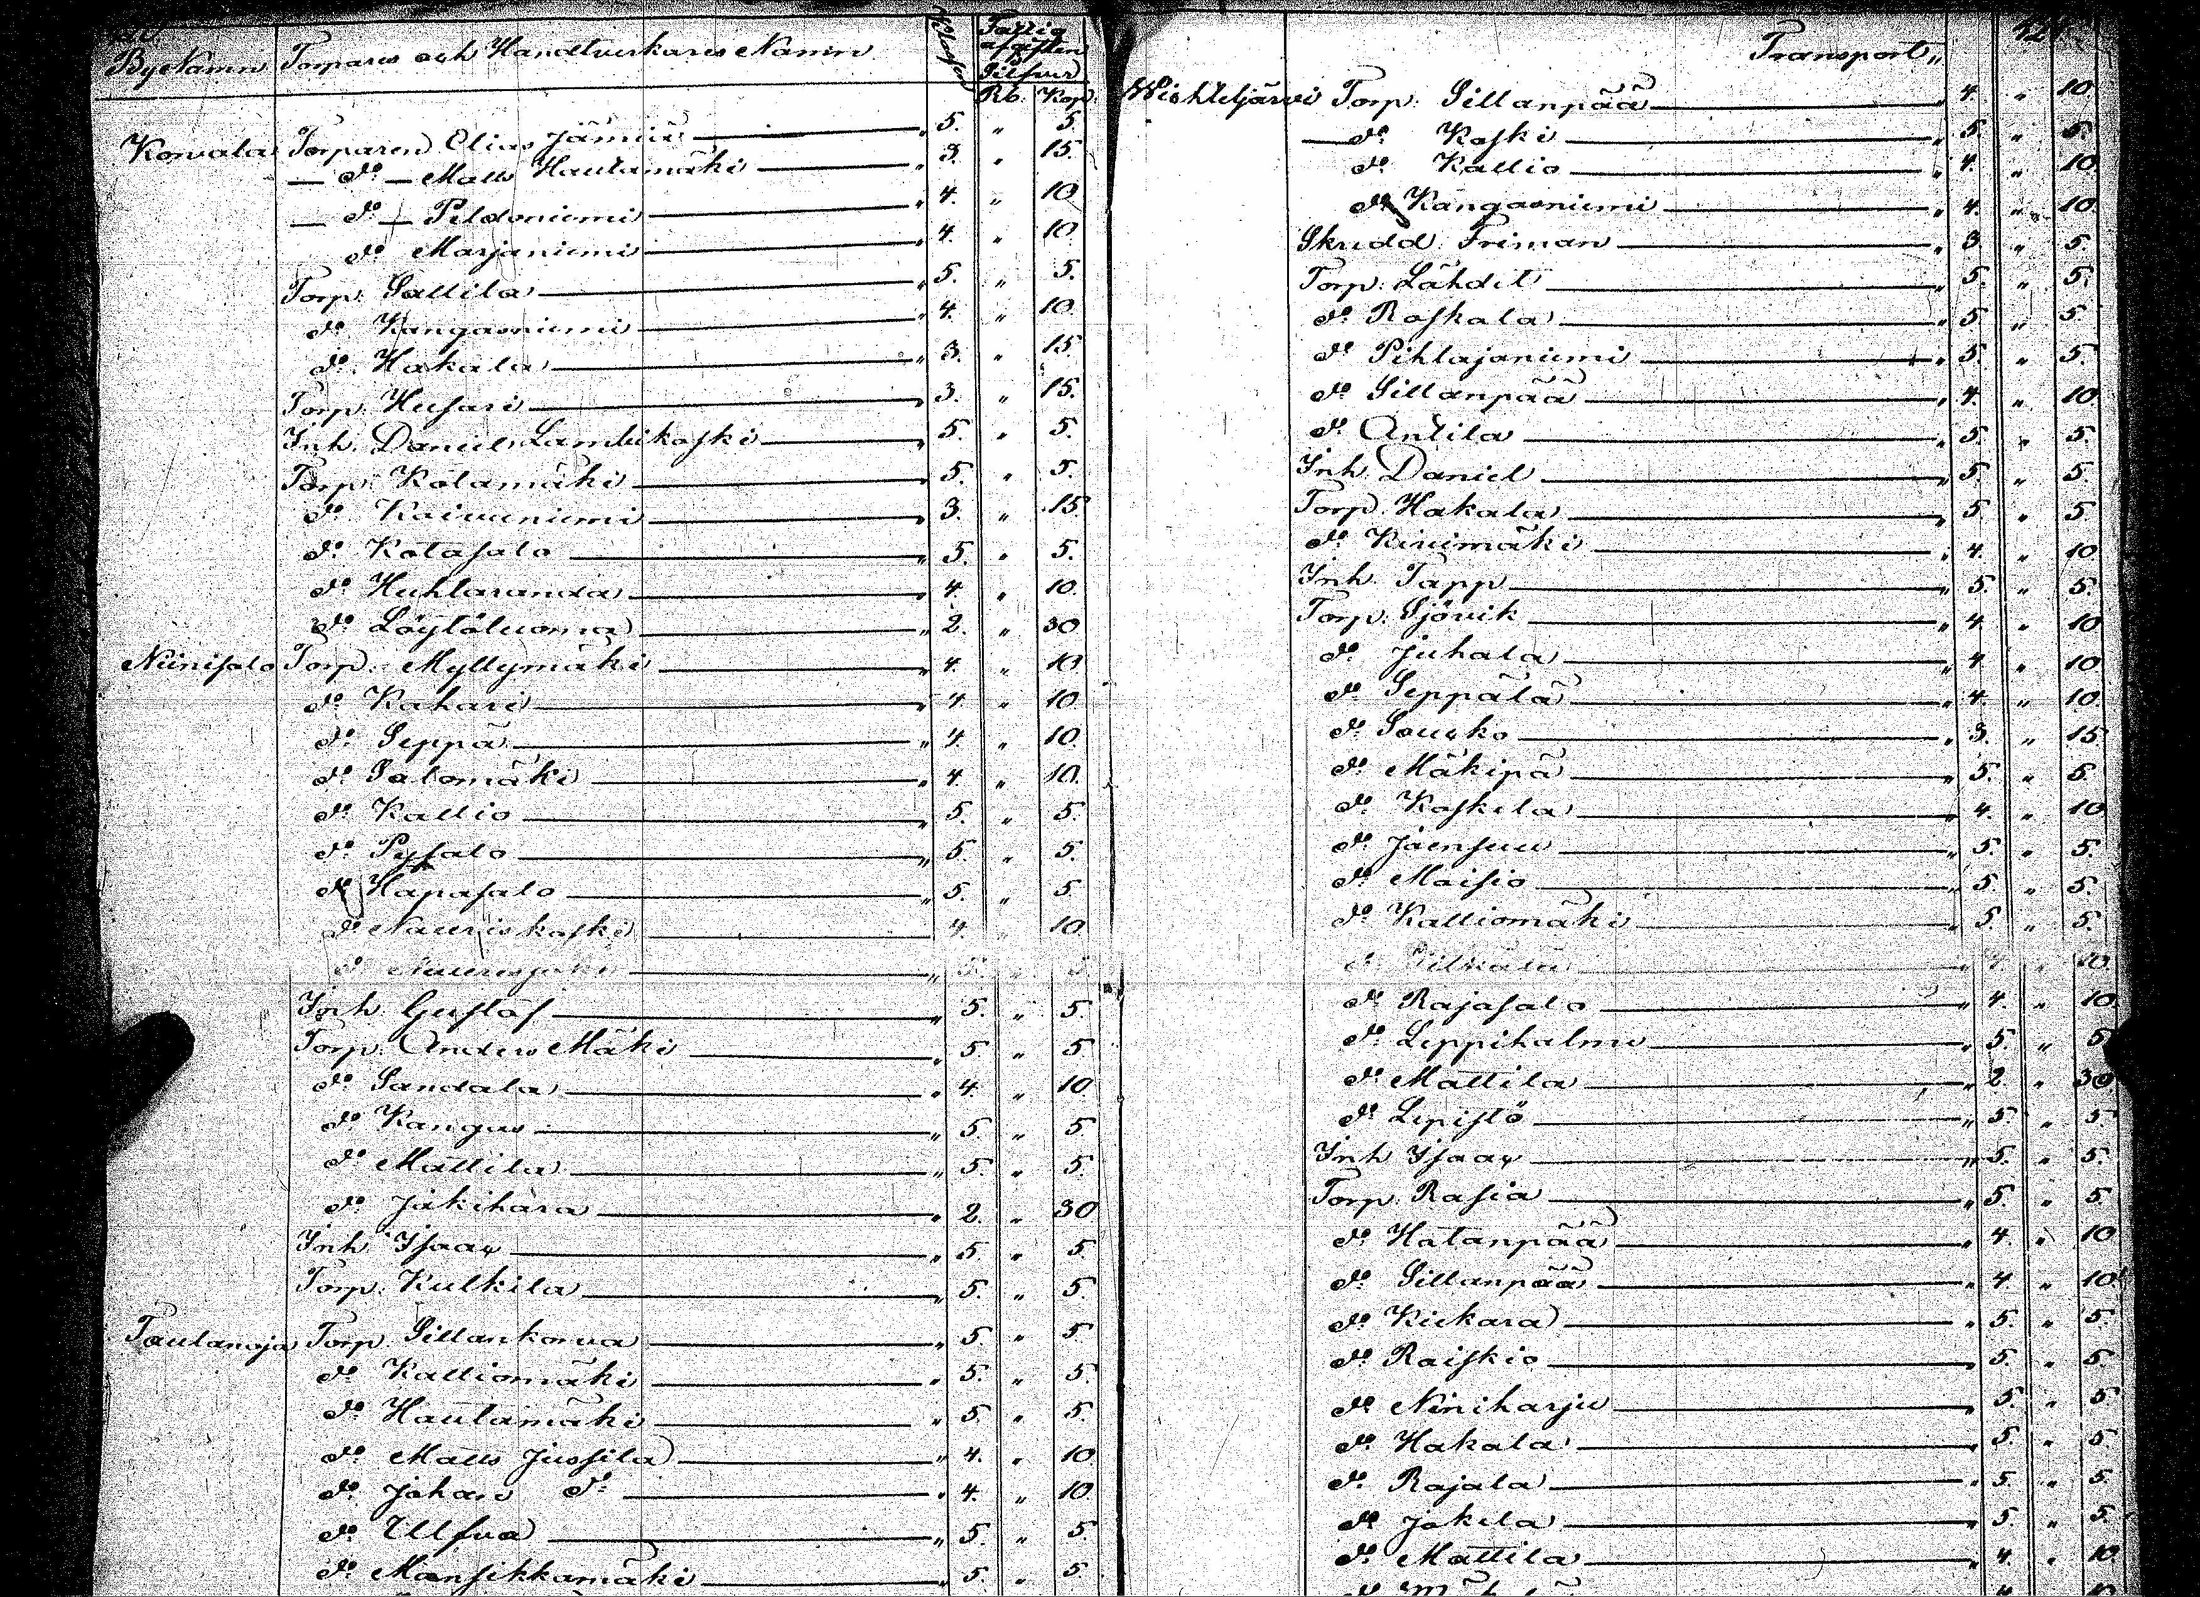 By Namn Torpares och Handtverkares Namn Klassen Fattig afgiften i Silfver
Rb. Kop.
Korvala Torparen Elias Jämiä " 5. " 5.
— do — Matts Hautamäki " 3. " 15.
— do — Peldoniemi " 4. " 10
do Marjaniemi " 4. " 10.
Torp. Sallila " 5. " 5.
do Kangasniemi " 4. " 10.
do Hakala " 3. " 15.
Torp. Husari " 3. " 15.
Inh. Daniel Lambikoski " 5. " 5.
Torp. Kotamäki " 5. " 5.
do Kaivuniemi " 3. " 15
do Kotasalo " 5. " 5.
do Huhtaranda " 4. " 10.
do Löytöluoma " 2. " 30
Niinisalo Torp. Myllymäki " 4. " 10
do Kahari " 4 " 10
do Seppä " 4. " 10.
do Salomäki " 4. " 10.
do Kallio " 5. " 5.
do Pysalo " 5. " 5.
do Hapasalo " 5. " 5
do Nauriskoski 4. " 10.
do
Inh. Gustaf " 5. " 5.
Torp. Anders Mäki " 5 " 5
do Sandala " 4. " 10
do Kangas " 5. " 5
do Mattila " 5 " 5
do Jakihara " 2. " 30
Inh. Isaac " 5 " 5.
Torp. Kulkila " 5. " 5
Taulanoja Torp. Sillankorva " 5 " 5
do Kalliomäki " 5. " 5
do Hautamäki " 5 " 5.
do Matts Jussila " 4. " 10
do Johan do " 4. " 10
do Ulfva " 5. " 5
do Mansikkamäki " 5. " 5
Transport "
Wichteljärvi Torp. Sillanpää " 4. " 10
do Koski " 5. " 5.
do Kallio " 4. " 10
do Kangasniemi " 4. " 10.
Skredd. Friman " 3 " 5.
Torp. Lähdet " 5. " 5.
do Roskala " 5 " 5
do Pihlajaniemi " 5. " 5.
do Sillanpää " 4. " 10
do Antila " 5. " 5.
Inh. Daniel " 5. " 5.
Torp. Hakala " 5. " 5.
do Kivimäki " 4. " 10
Inh. Tapp " 5. " 5.
Torp. Sjövik " 4. " 10
do Juhala " 4. " 10
do Seppälä " 4. " 10.
do Souko " 3. " 15
do Mäkipä " 5. " 5
do Koskela " 4. " 10
do Jäensuu " 5. " 5.
do Maisio " 5 " 5.
do Kalliomäki " 5. " 5.
do " 10
do Rajasalo " 4. " 10
do Leppihalme " 5. " 5
do Mattila " 2. " 30
do Lepistö " 5. " 5.
Inh. Isaac " 5. " 5.
Torp. Rasia " 5. " 5
do Hatanpää " 4. " 10
do Sillanpää " 4 " 10
do Kiekara " 5. " 5.
do Raiskio " 5. " 5
do Niniharju " 5. " 5
do Hakala " 5. " 5
do Rajala " 5 " 5
do Jokela " 5. " 5
do Mattila " 4. " 10